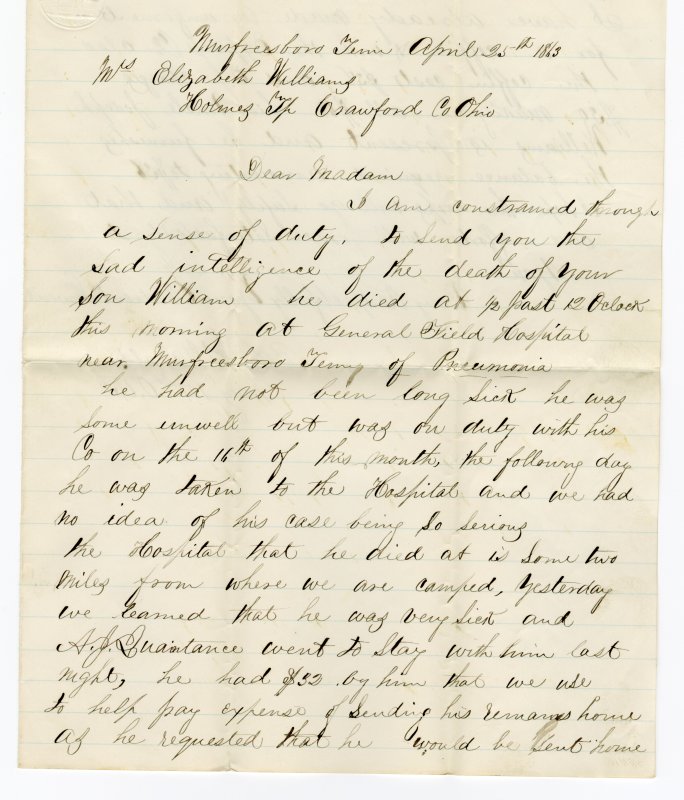 Murfreesboro Tenn April 25th 1863
Mrs Elizabeth Williams
Holmes Tp Crawford Co Ohio
Dear Madam
I am constrained through
a sense of duty, to send you the
sad intelligence of the death of your
Son William he died at ½ past 12 Oclock
this morning at General Field Hospital
near Murfreesboro Tenn, of Pneumonia
he had not been long sick he was
some unwell but was on duty with his
Co on the 16th of this month, the following day
he was taken to the Hospital and we had
no idea of his case being so serious
the Hospital that he died at is some two
miles from where we are camped, yesterday
we learned that he was very sick and
A. J. Quaintance went to stay with him last
night, he had $32 by him that we use
to help pay expense of sending his remains home
as he requested that he would be sent home